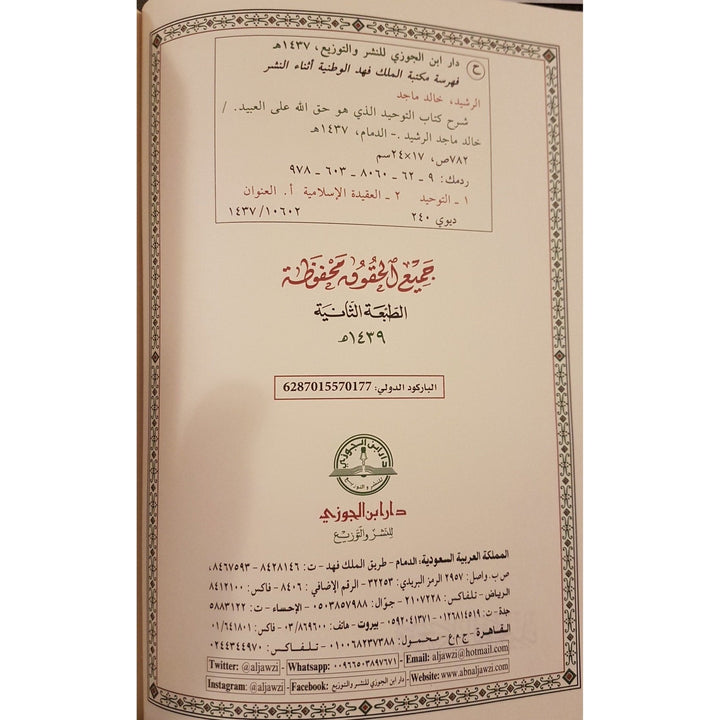 ح
دار ابن الجوزي للنشر والتوزيع، ١٤٣٧هـ
فهرسة مكتبة الملك فهد الوطنية أثناء النشر
الرشيد، خالد ماجد
شرح كتاب التوحيد الذي هو حق الله على العبيد. /
خالد ماجد الرشيد .- الدمام، ١٤٣٧هـ
٧٨٢ص، ١٧×٢٤سم
ردمك: ٩ - ٦٢ - ٨٠٦٠ - ٦٠٣ - ٩٧٨
١ - التوحيد ٢ - العقيدة الإسلامية أ. العنوان
ديوي ٢٤٠ ١٤٣٧/١٠٦٠٢
جميع الحقوق محفوظة
الطبعة الثانية
١٤٣٩هـ
الباركود الدولي: 6287015570177
دار ابن الجوزي
للنشر والتوزيع
دار ابن الجوزي
للنشر والتوزيع
المملكة العربية السعودية: الدمام - طريق الملك فهد - ت: ٨٤٢٨١٤٦ - ٨٤٦٧٥٩٣،
ص ب. واصل: ٢٩٥٧ الرمز البريدي: ٣٢٢٥٣ - الرقم الإضافي: ٨٤٠٦ - فاكس: ٨٤١٢١٠٠
الرياض - تلفاكس: ٢١٠٧٢٢٨ - جوّال: ٠٥٠٣٨٥٧٩٨٨ - الإحساء - ت: ٥٨٨٣١٢٢
جدة - ت: ٠١٢٦٨١٤٥١٩ - ٠٥٩٢٠٤١٣٧١ - بيروت - هاتف: ٠٣/٨٦٩٦٠٠ - فاكس: ٠١/٦٤١٨٠١
القاهرة - ج م ع - محمول: ٠١٠٠٦٨٢٣٧٣٨٨ - تلفاكس: ٠٢٤٤٣٤٤٩٧٠
Twitter: @aljawzi - Whatsapp: ٠٠٩٦٦٥٠٣٨٩٧٦٧١ - Email: aljawzi@hotmail.com
Instagram: @aljawzi - Facebook: دار ابن الجوزي للنشر والتوزيع - Website: www.abnaljawzi.com